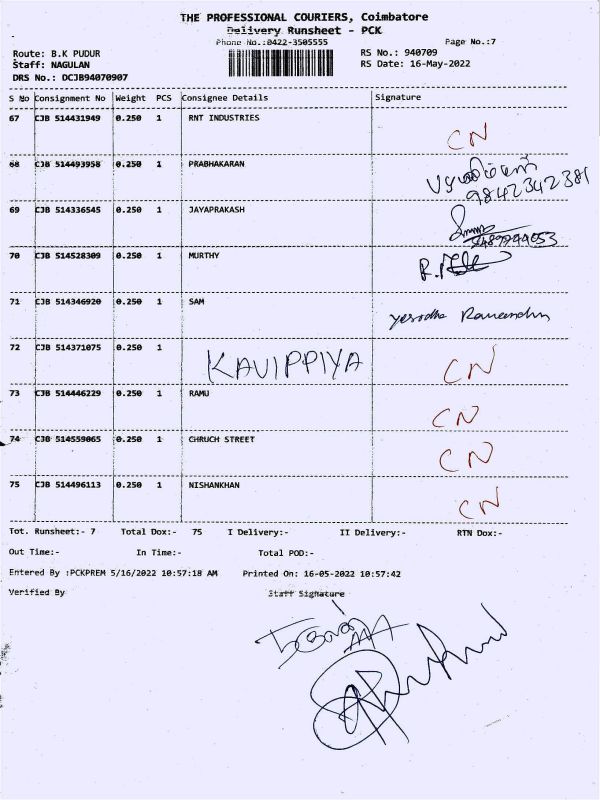 THE PROFESSIONAL COURIERS, Coimbatore
Delivery Runsheet - PCK
Phone No.:0422-3505555 Page No.:7
Route: B.K PUDUR RS No.: 940709
Staff: NAGULAN RS Date: 16-May-2022
DRS No.: DCJB94070907
S No Consignment No Weight PCS Consignee Details Signature
67 CJB 514431949 0.250 1 RNT INDUSTRIES
CN
68 CJB 514493958 0.250 1 PRABHAKARAN
9842342381
69 CJB 514336545 0.250 1 JAYAPRAKASH
70 CJB 514528309 0.250 1 MURTHY
71 CJB 514346920 0.250 1 SAM
72 CJB 514371075 0.250 1
KAVIPPIYA CN
73 CJB 514446229 0.250 1 RAMU
CN
74 CJB 514559065 0.250 1 CHRUCH STREET
CN
75 CJB 514496113 0.250 1 NISHANKHAN
CN
Tot. Runsheet:- 7 Total Dox:- 75 I Delivery:- II Delivery:- RTN Dox:-
Out Time:- In Time:- Total POD:-
Entered By :PCKPREM 5/16/2022 10:57:18 AM Printed On: 16-05-2022 10:57:42
Verified By Staff Signature